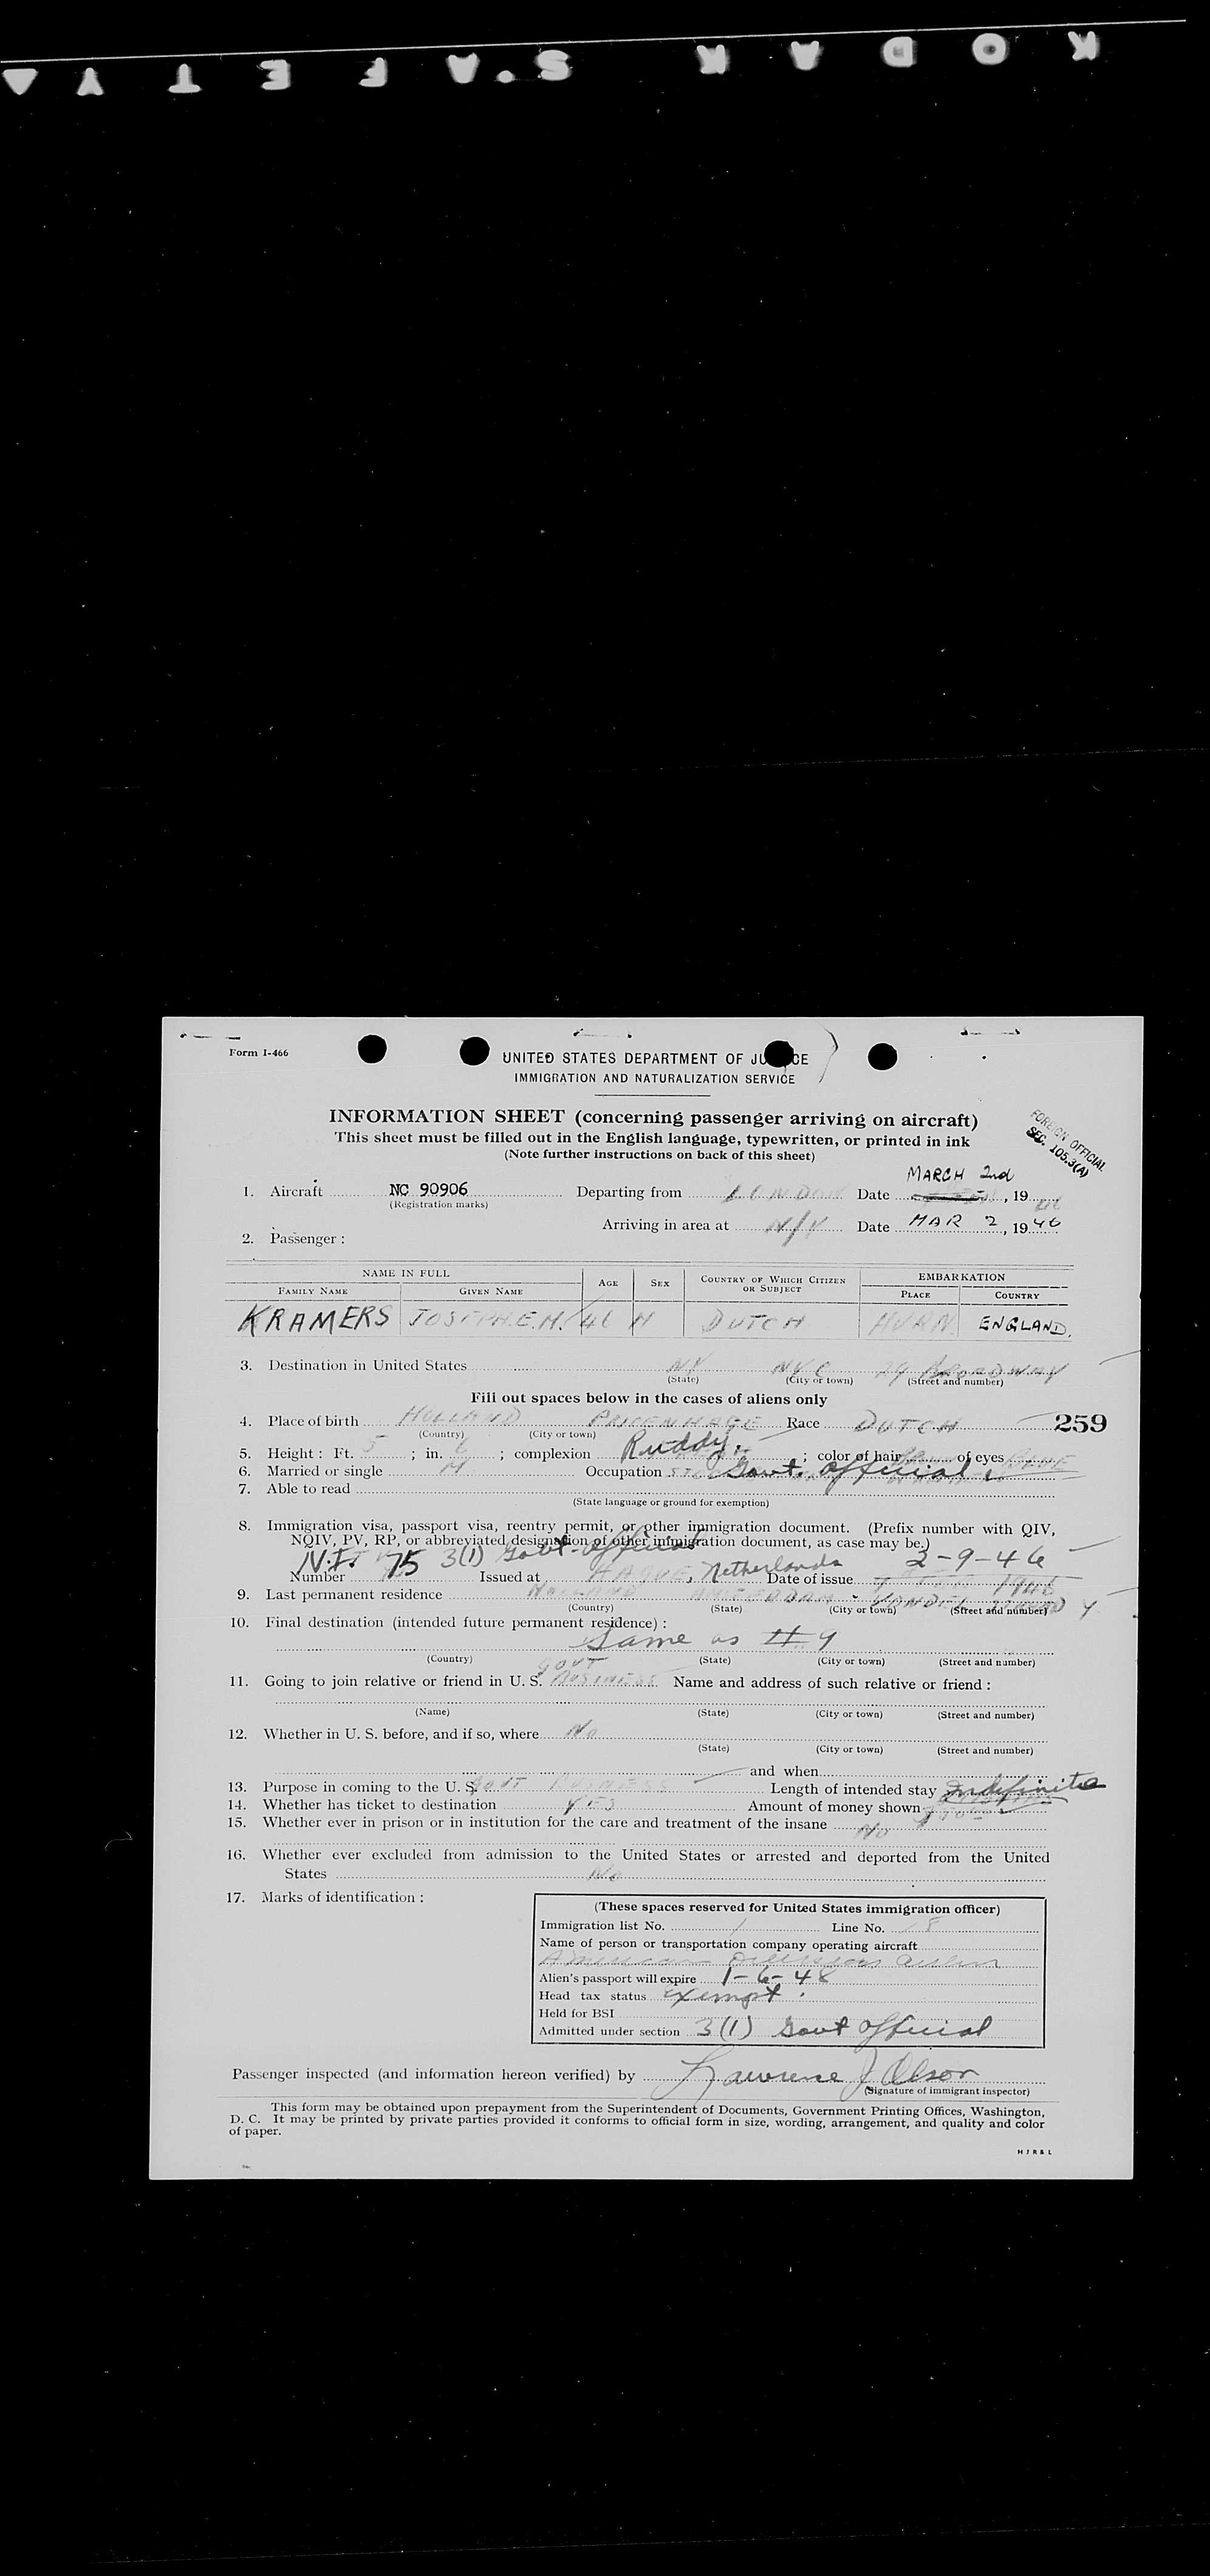 KODAK S.A.FETY
Form I-466
UNITED STATES DEPARTMENT OF JU CE
IMMIGRATION AND NATURALIZATION SERVICE
INFORMATION SHEET (concerning passenger arriving on aircraft)
This sheet must be filled out in the English language, typewritten, or printed in ink
(Note further instructions on back of this sheet)
FOREIGN OFFICIAL
SEC. 105.3(A)
MARCH 2nd
1. Aircraft NC 90906 Departing from LONDON Date , 19 46
(Registration marks)
Arriving in area at N/Y Date MAR 2, 1946
2. Passenger :
NAME IN FULL AGE SEX COUNTRY OF WHICH CITIZEN OR SUBJECT EMBARKATION
FAMILY NAME GIVEN NAME PLACE COUNTRY
KRAMERS JOSEPH.E.M. 46 M DUTCH HURN ENGLAND.
3. Destination in United States NY NYC 29 BROADWAY
(State) (City or town) (Street and number)
Fill out spaces below in the cases of aliens only
4. Place of birth HOLLAND PRICENHAGE Race DUTCH 259
(Country) (City or town)
5. Height : Ft. 5 ; in. 6 ; complexion Ruddy. ; color of hair of eyes BLUE
6. Married or single M Occupation Govt. official
7. Able to read
(State language or ground for exemption)
8. Immigration visa, passport visa, reentry permit, or other immigration document. (Prefix number with QIV,
NQIV, PV, RP, or abbreviated designation of other immigration document, as case may be.)
N.I. 75 3(1) Govt. official 2-9-46
Number Issued at HAGUE, Netherlands Date of issue 1946
9. Last permanent residence HOLLAND AMSTERDAM
(Country) (State) (City or town) (Street and number)
10. Final destination (intended future permanent residence) :
Same as #9
(Country) (State) (City or town) (Street and number)
11. Going to join relative or friend in U. S. GOVT BUSINESS Name and address of such relative or friend :
(Name) (State) (City or town) (Street and number)
12. Whether in U. S. before, and if so, where No
(State) (City or town) (Street and number)
and when
13. Purpose in coming to the U. S. GOVT BUSINESS Length of intended stay Indefinite
14. Whether has ticket to destination YES Amount of money shown
15. Whether ever in prison or in institution for the care and treatment of the insane No
16. Whether ever excluded from admission to the United States or arrested and deported from the United
States No
17. Marks of identification :
(These spaces reserved for United States immigration officer)
Immigration list No. 1 Line No. 8
Name of person or transportation company operating aircraft
American Overseas Airlines
Alien's passport will expire 1-6-48
Head tax status exempt.
Held for BSI
Admitted under section 3(1) Govt official
Passenger inspected (and information hereon verified) by Lawrence J Olson
(Signature of immigrant inspector)
This form may be obtained upon prepayment from the Superintendent of Documents, Government Printing Offices, Washington,
D. C. It may be printed by private parties provided it conforms to official form in size, wording, arrangement, and quality and color
of paper.
H J R & L